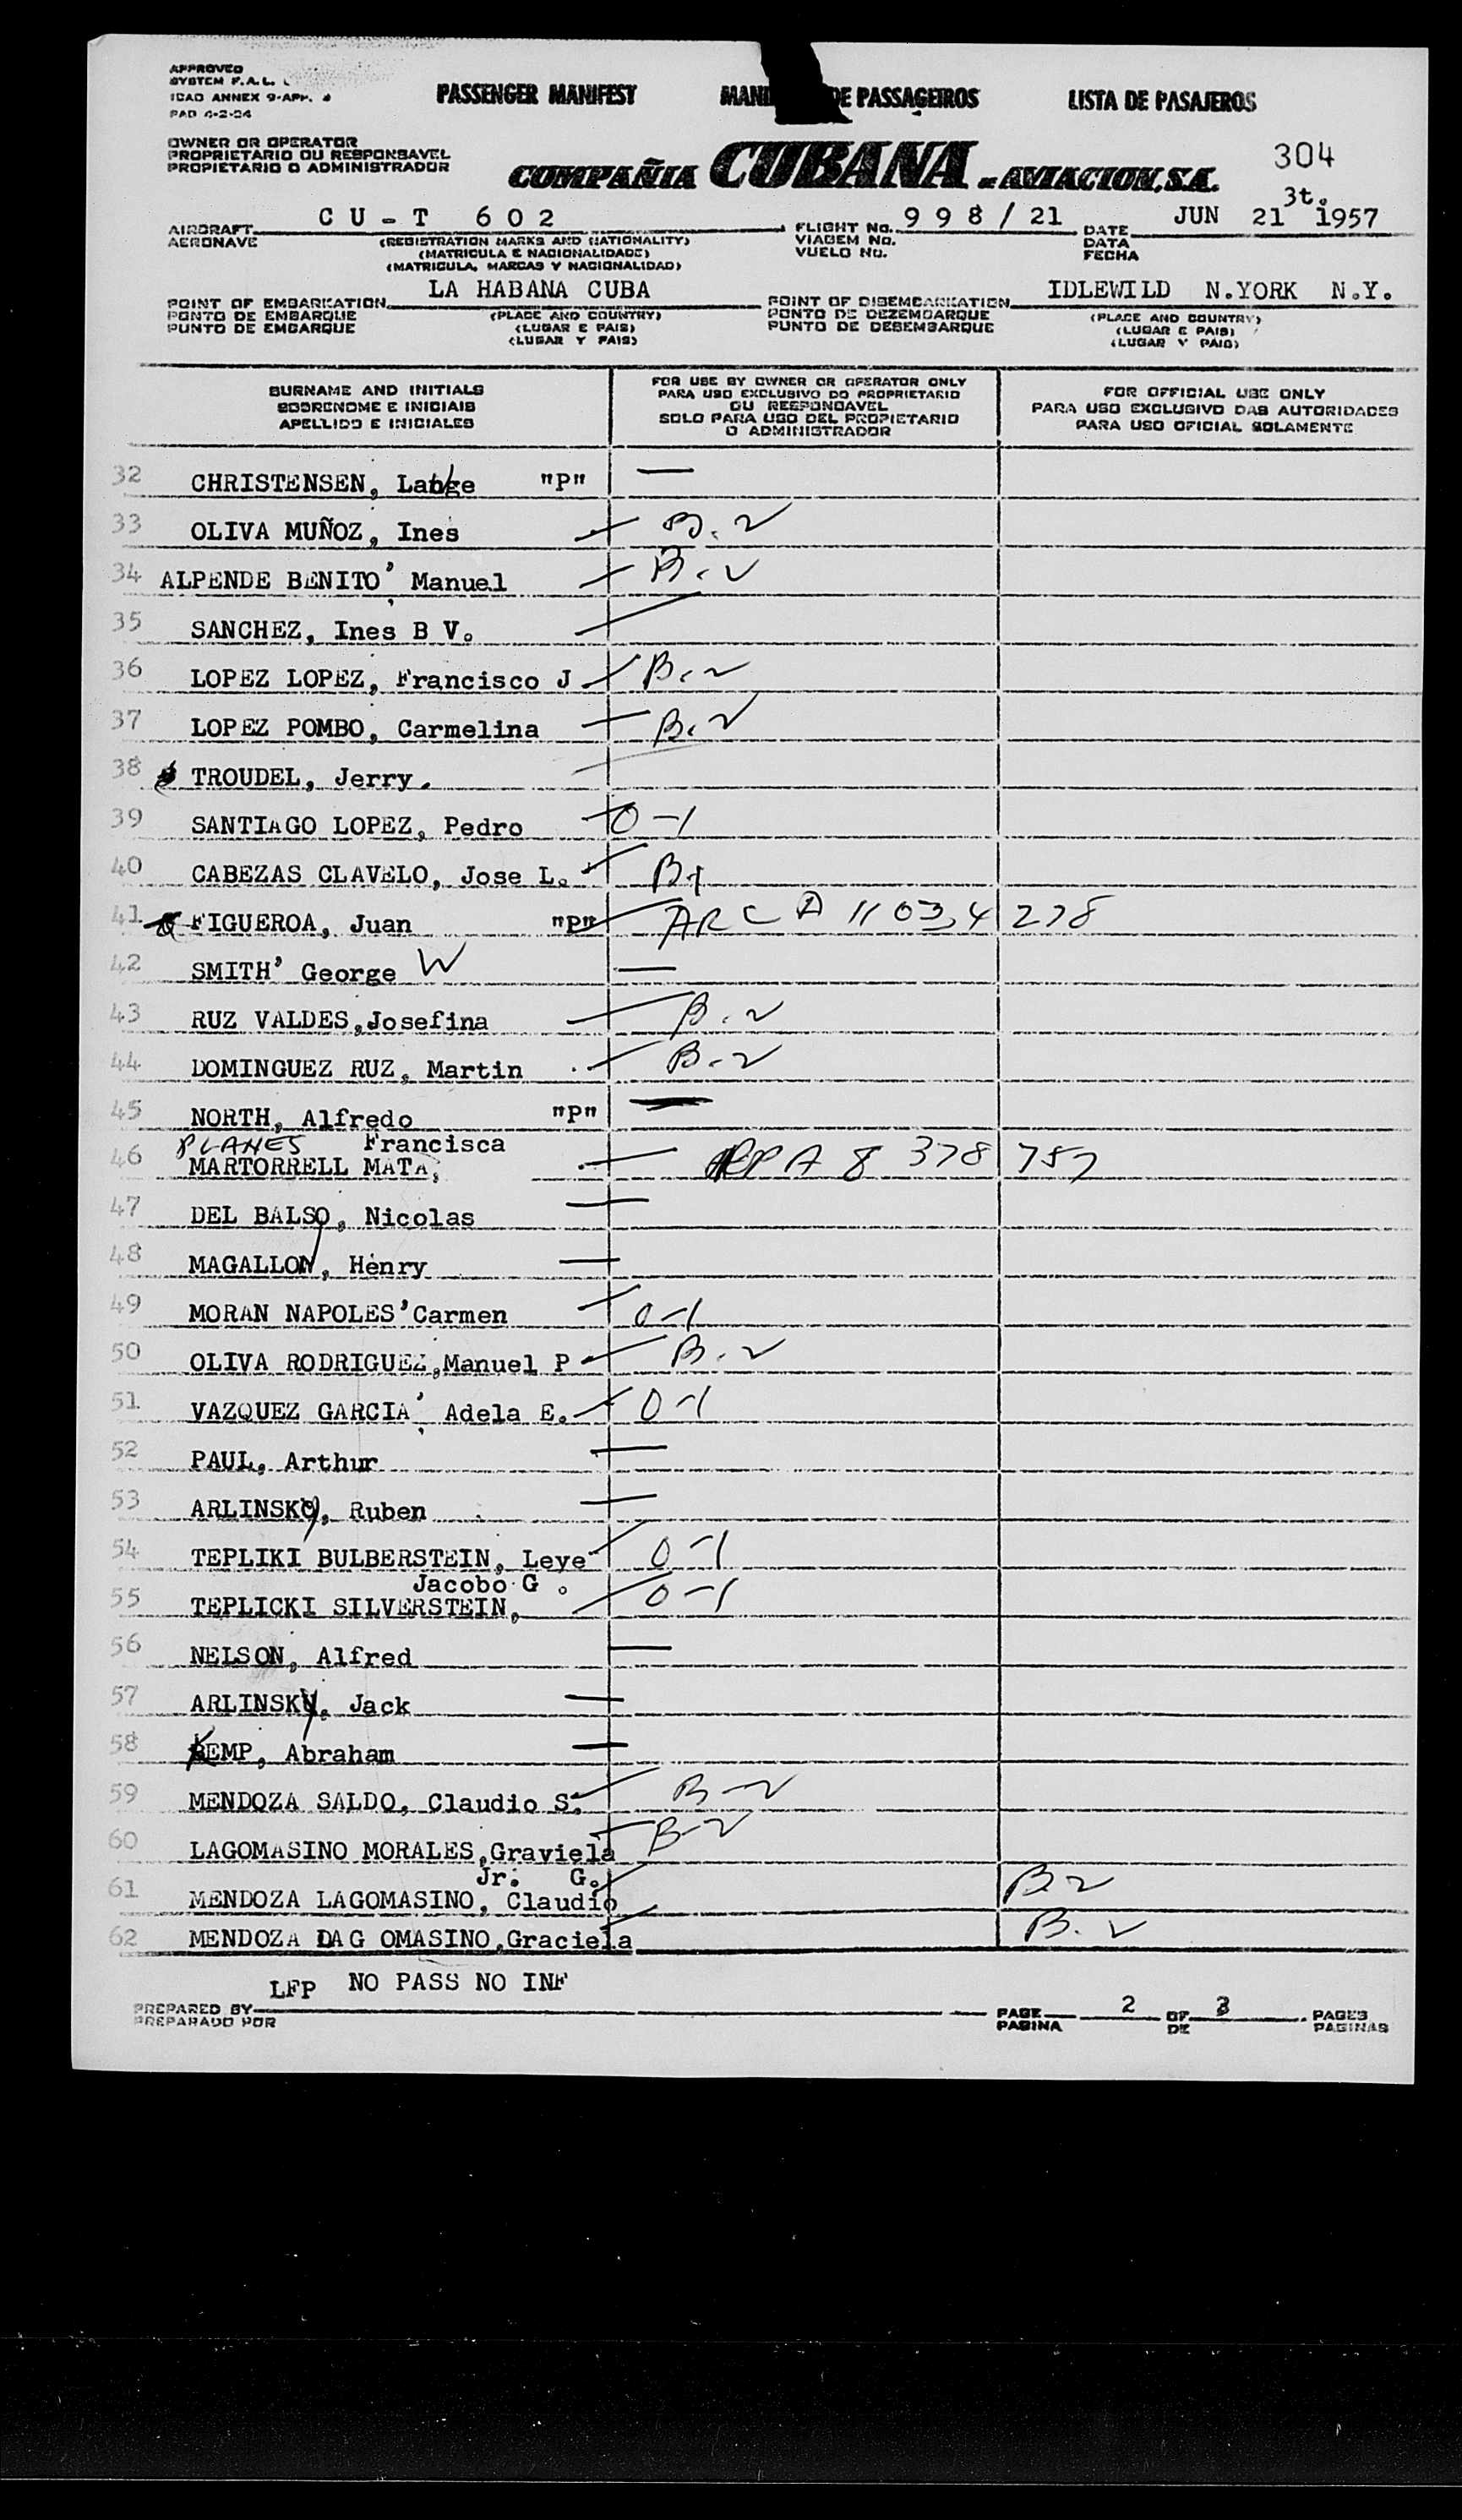 APPROVED
SYSTEM F.A.L.
ICAO ANNEX 9-APP. 
PAD 4-2-54
PASSENGER MANIFEST DE PASSAGEIROS LISTA DE PASAJEROS
OWNER OR OPERATOR
PROPRIETARIO OU RESPONSAVEL
PROPIETARIO O ADMINISTRADOR
COMPAÑIA CUBANA DE AVIACION, S.A.
304
3t.
AIRCRAFT CU-T 602 FLIGHT No. 998/21 DATE JUN 21 1957
AERONAVE (REGISTRATION MARKS AND NATIONALITY) VIAGEM No. DATA
(MATRICULA E NACIONALIDADE) VUELO No. FECHA
(MATRICULA, MARCAS Y NACIONALIDAD)
POINT OF EMBARKATION LA HABANA CUBA POINT OF DISEMBARKATION IDLEWILD N.YORK N.Y.
PONTO DE EMBARQUE (PLACE AND COUNTRY) PONTO DE DEZEMBARQUE (PLACE AND COUNTRY)
PUNTO DE EMBARQUE (LUGAR E PAIS) PUNTO DE DESEMBARQUE (LUGAR E PAIS)
(LUGAR Y PAIS) (LUGAR Y PAIS)
SURNAME AND INITIALS
SOBRENOME E INICIAIS
APELLIDO E INICIALES
FOR USE BY OWNER OR OPERATOR ONLY
PARA USO EXCLUSIVO DO PROPRIETARIO
OU RESPONDAVEL
SOLO PARA USO DEL PROPIETARIO
O ADMINISTRADOR
FOR OFFICIAL USE ONLY
PARA USO EXCLUSIVO DAS AUTORIDADES
PARA USO OFICIAL SOLAMENTE
32 CHRISTENSEN, "P" —
33 OLIVA MUÑOZ, Ines B.2
34 ALPENDE BENITO, Manuel B.2
35 SANCHEZ, Ines B V.
36 LOPEZ LOPEZ, Francisco J B.2
37 LOPEZ POMBO, Carmelina B.2
38 TROUDEL, Jerry.
39 SANTIAGO LOPEZ, Pedro O-1
40 CABEZAS CLAVELO, Jose L. B1
41 FIGUEROA, Juan "P" ARC A 11 034 278
42 SMITH' George W —
43 RUZ VALDES,Josefina B.2
44 DOMINGUEZ RUZ, Martin B-2
45 NORTH, Alfredo "P" —
PLANES Francisca
46 MARTORRELL MATA, RPA 8 378 757
47 DEL BALSO, Nicolas —
48 MAGALLON, Henry —
49 MORAN NAPOLES'Carmen O-1
50 OLIVA RODRIGUEZ,Manuel P B.2
51 VAZQUEZ GARCIA, Adela E. O-1
52 PAUL, Arthur —
53 ARLINSKY, Ruben —
54 TEPLIKI BULBERSTEIN, Leye O-1
Jacobo G.
55 TEPLICKI SILVERSTEIN, O-1
56 NELSON, Alfred —
57 ARLINSKY, Jack —
58 KEMP, Abraham —
59 MENDOZA SALDO, Claudio S. B-2
60 LAGOMASINO MORALES,Graviela B-2
Jr. G.
61 MENDOZA LAGOMASINO, Claudio B2
62 MENDOZA DAG OMASINO,Graciela B.2
LFP NO PASS NO INF
PREPARED BY PAGE 2 OF 3 PAGES
PREPARADO POR PAGINA DE PAGINAS